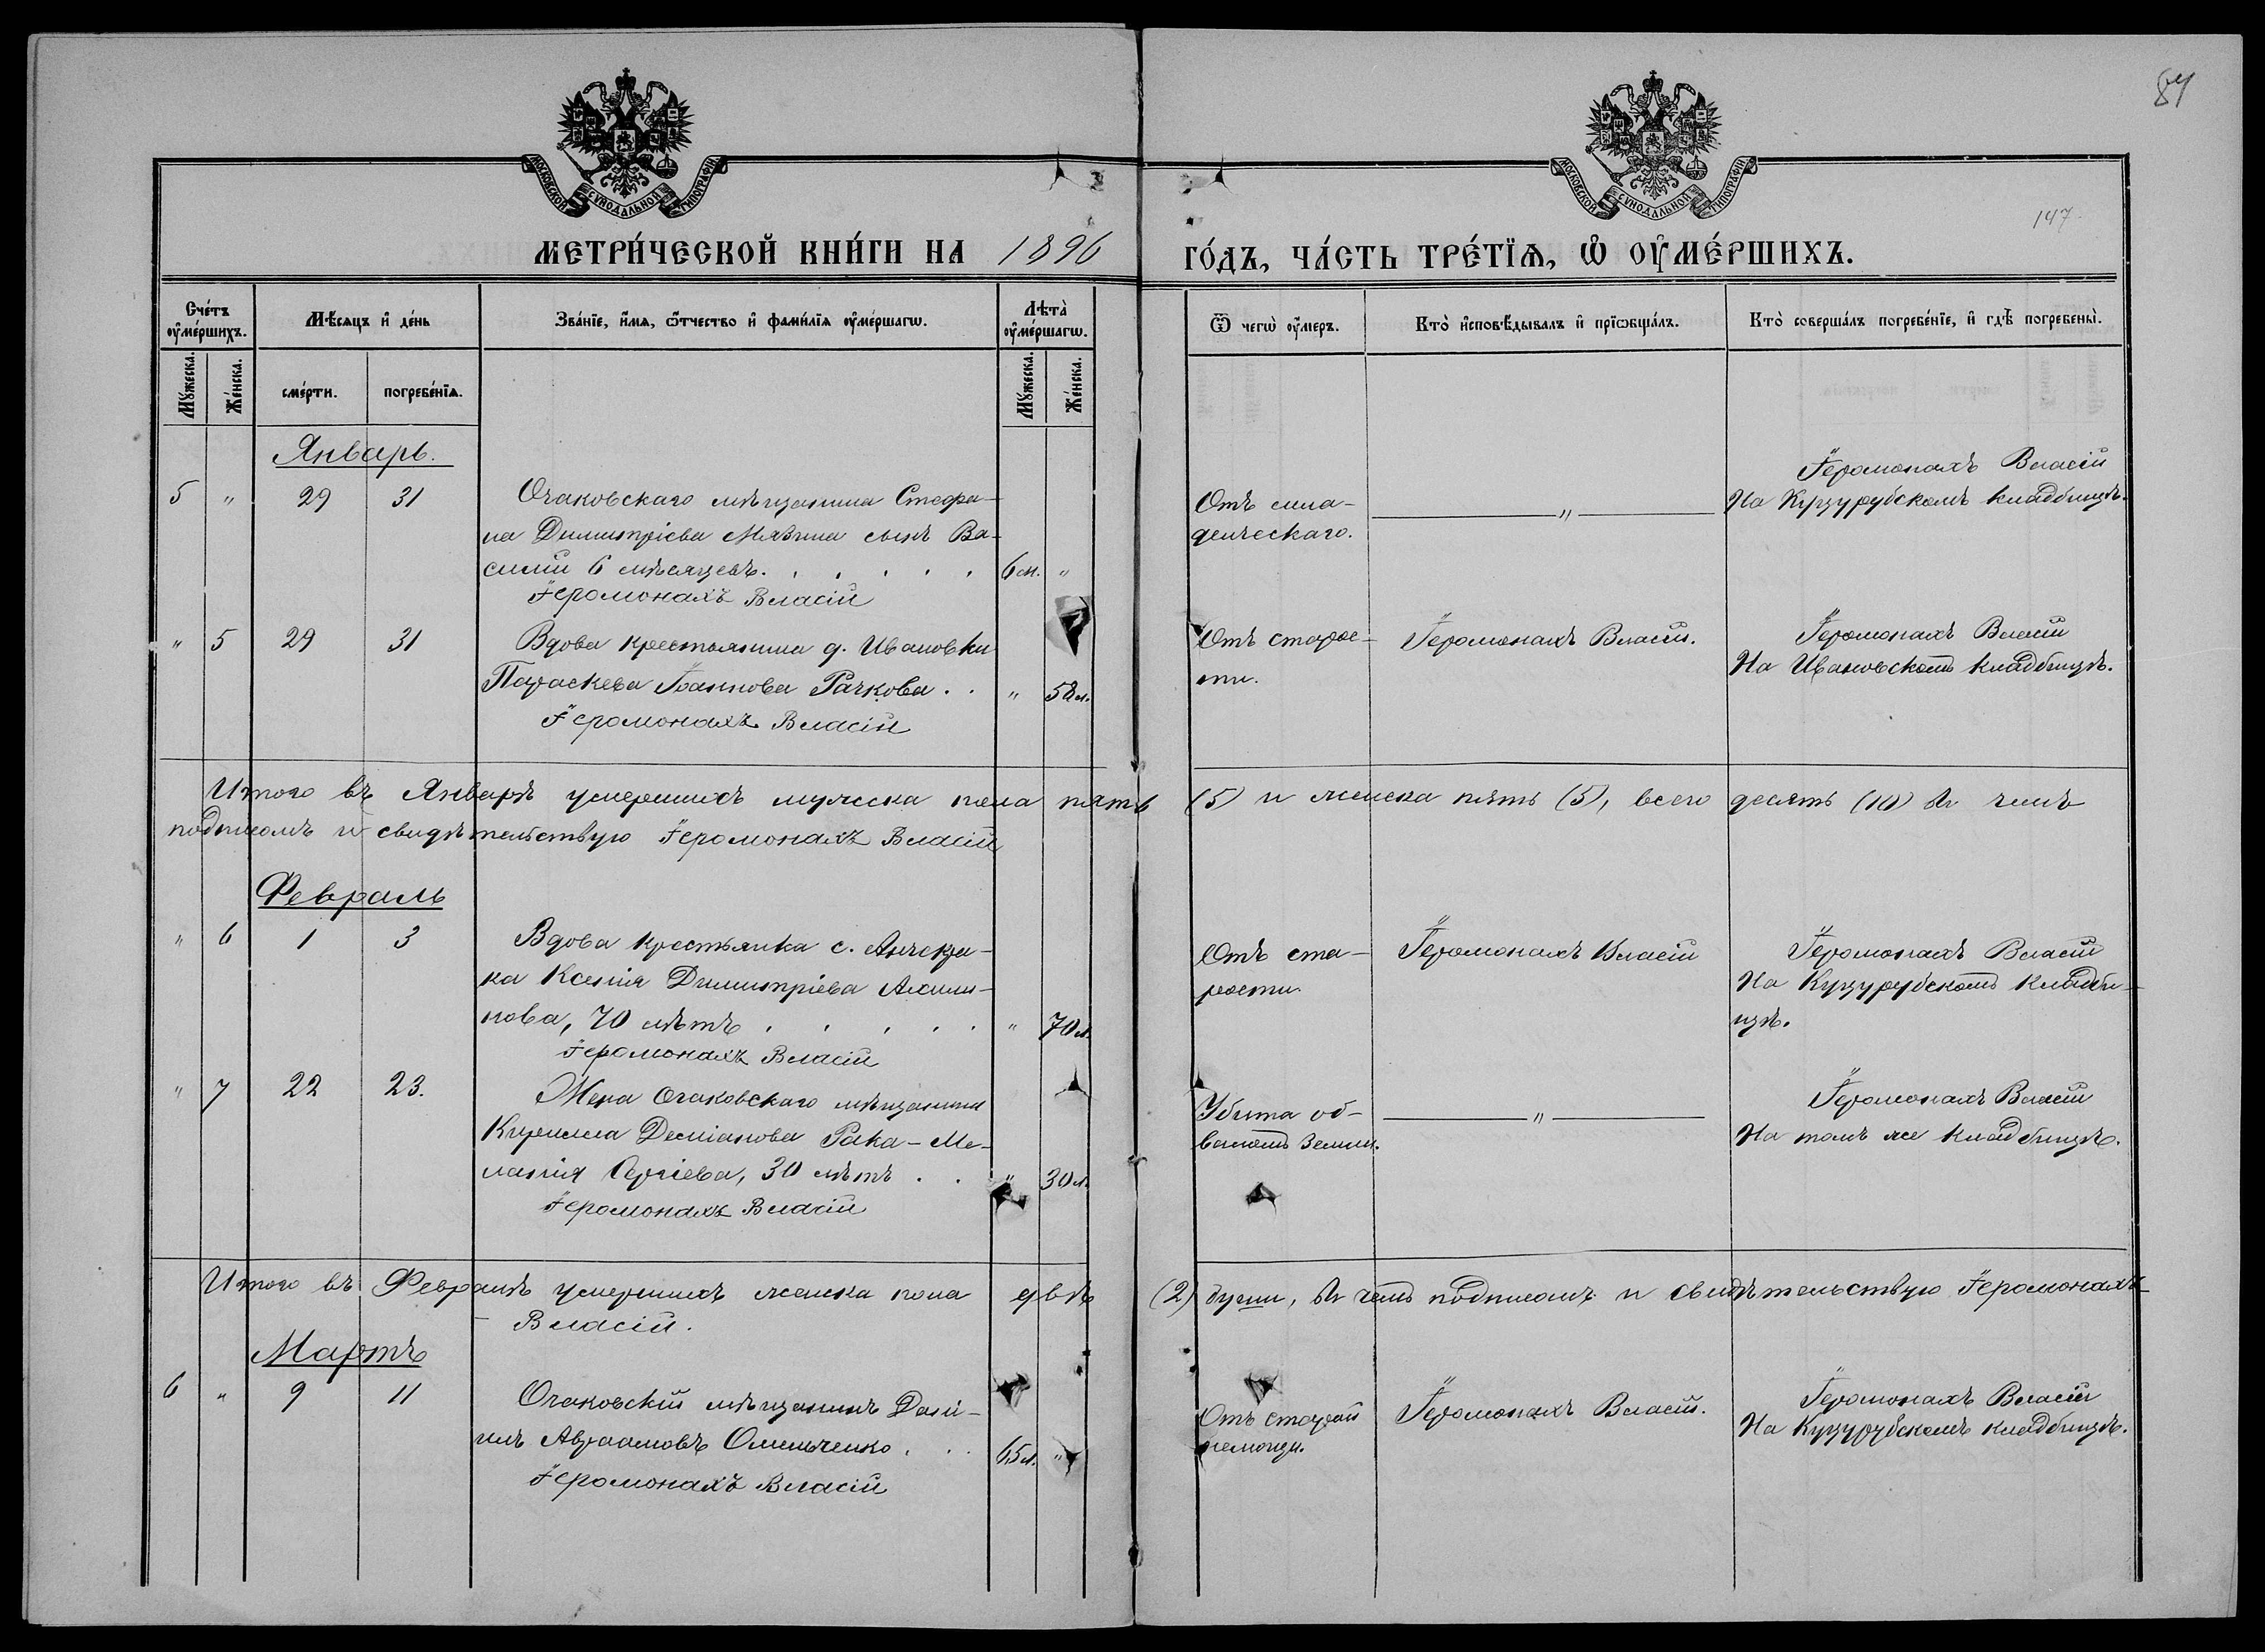 84
147
МОСКОВСКОЙ СѴНОДАЛЬНОЙ ТИПОГРАФІИ
МОСКОВСКОЙ СѴНОДАЛЬНОЙ ТИПОГРАФІИ
МЕТРИ́ЧЕСКОЙ КНИ́ГИ НА 1896 ГО́ДЪ, ЧА́СТЬ ТРЕ́ТЇѦ, Ѡ҆ ОУ҆МЕ́РШИХЪ.
Сче́тъ оу҆ме́ршихъ.
Мѣ́сяцъ и҆ де́нь
Зва́нїе, и҆́мѧ, ѻ҆́тчество и҆ фами́лїѧ оу҆ме́ршагѡ.
Лѣ̑та̀ оу҆ме́ршагѡ.
Ѿ чегѡ̀ оу҆́меръ.
Кто̀ и҆сповѣ́дывалъ и҆ прїѡбща́лъ.
Кто̀ соверша́лъ погребе́нїе, и҆ гдѣ̀ погребены̀.
Мꙋ́жеска.
Же́нска.
сме́рти.
погребе́нїѧ.
Мꙋ́жеска.
Же́нска.
Январь.
5 " 29 31 Очаковскаго мѣщанина Стефа-
на Димитріева Мязина сынъ Ва-
силій 6 мѣсяцевъ. . . . . . 6 м. "
Іеромонахъ Власій
Отъ мла-
денческаго.
"
Іеромонахъ Власій
На Куцурубскомъ кладбищѣ.
" 5 29 31 Вдова крестьянина д. Ивановки
Параскева Іоаннова Рачкова . . " 58 л.
Іеромонахъ Власій
Отъ старос-
ти.
Іеромонахъ Власій.
Іеромонахъ Власій
На Ивановскомъ кладбищѣ.
Итого въ Январѣ умершихъ мужеска пола пять (5) и женска пять (5), всего десять (10) въ чемъ
подписомъ и свидѣтельствую Іеромонахъ Власій
Февраль
" 6 1 3 Вдова крестьянка с. Анчекра-
ка Ксенія Димитріева
70 лѣтъ . . . . . " 70 л.
Іеромонахъ Власій
Отъ ста-
рости.
Іеромонахъ Власій
Іеромонахъ Власій
На Куцурубскомъ кладби-
щѣ.
" 7 22 23. Жена Очаковскаго мѣщанина
Кирилла Деміанова Рака - Ме-
ланія Сергіева, 30 лѣтъ . . " 30 л.
Іеромонахъ Власій
Убита об-
валомъ земли.
"
Іеромонахъ Власій
На томъ же кладбищѣ.
Итого въ Февралѣ умершихъ женска пола двѣ (2) души, въ чемъ подписомъ и свидѣтельствую Іеромонахъ
Власій.
Мартъ
6 " 9 11 Очаковскій мѣщанинъ Дані-
илъ Авраамовъ Омельченко . . . 65 л. "
Іеромонахъ Власій
Отъ старой
немощи.
Іеромонахъ Власій.
Іеромонахъ Власій
На Куцурубскомъ кладбищѣ.